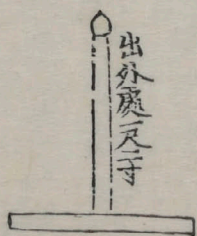 出外處一尺二寸